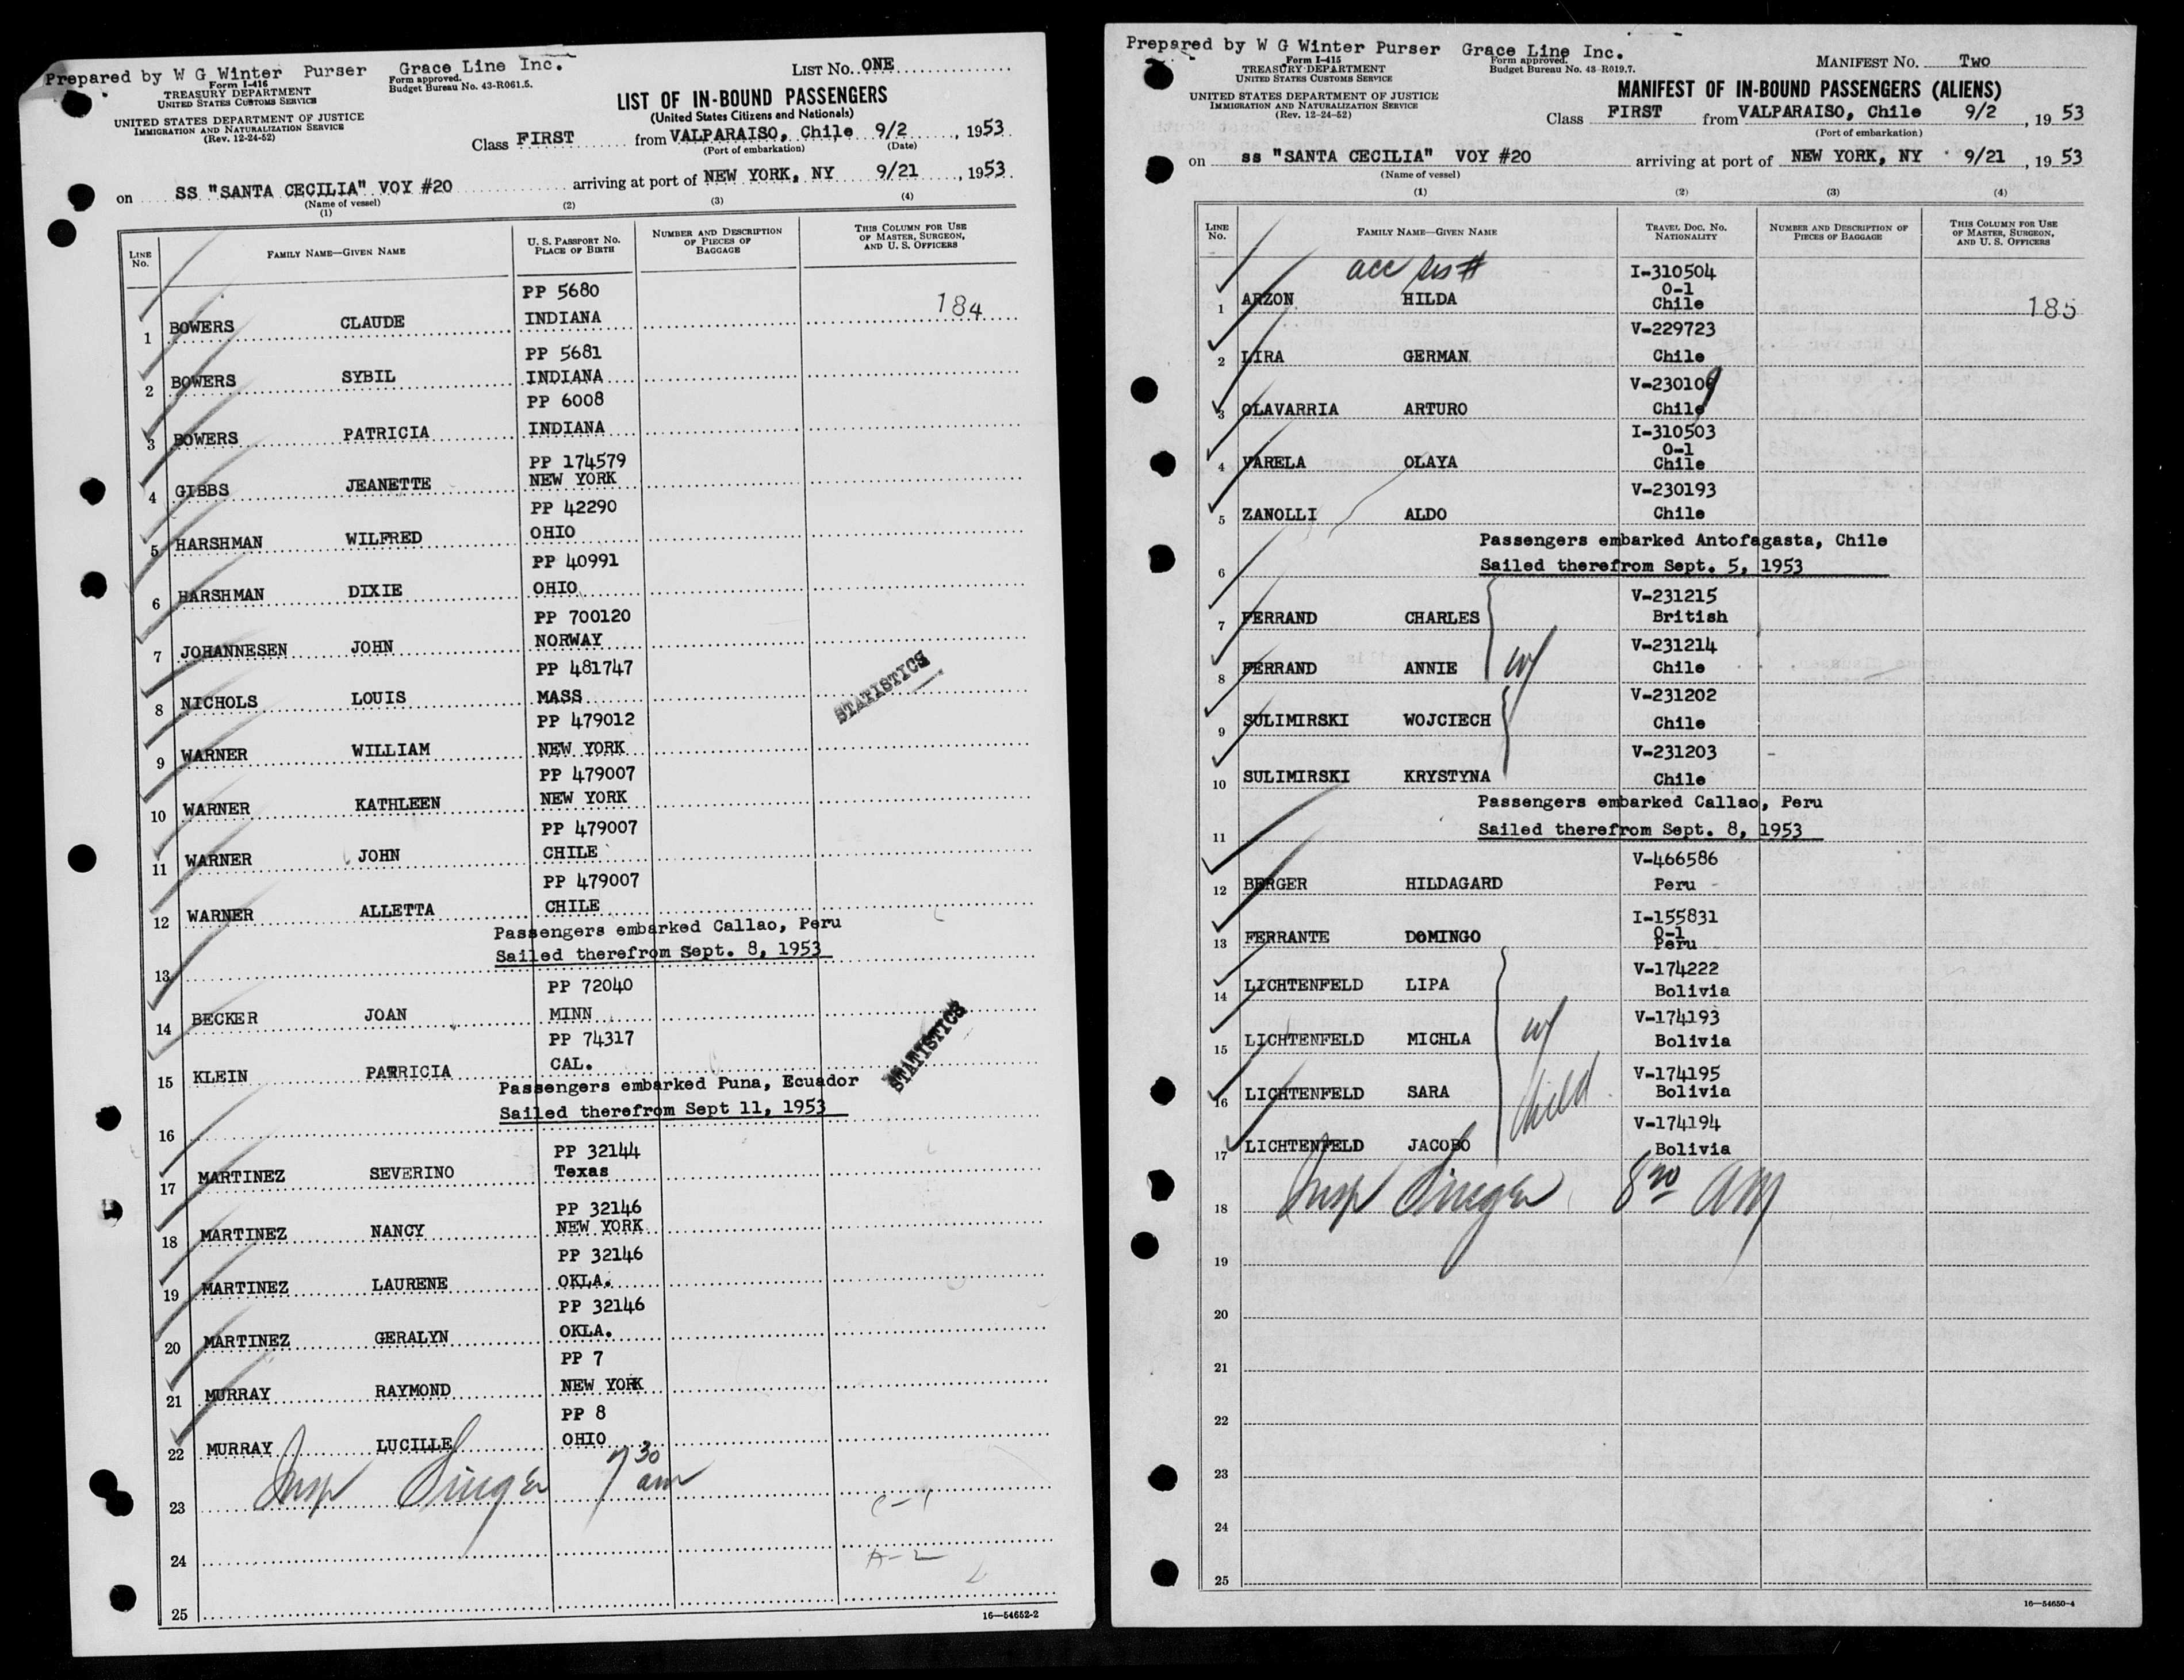 Prepared by W G Winter Purser Grace Line Inc.
Form I-416
TREASURY DEPARTMENT
UNITED STATES CUSTOMS SERVICE
Form approved.
Budget Bureau No. 43-R061.5.
LIST No. ONE
UNITED STATES DEPARTMENT OF JUSTICE
IMMIGRATION AND NATURALIZATION SERVICE
(Rev. 12-24-52)
LIST OF IN-BOUND PASSENGERS
(United States Citizens and Nationals)
Class FIRST from VALPARAISO, Chile 9/2, 1953
(Port of embarkation) (Date)
on SS "SANTA CECILIA" VOY #20 arriving at port of NEW YORK, NY 9/21, 1953.
(Name of vessel)
(1) (2) (3) (4)
LINE No. FAMILY NAME—GIVEN NAME U. S. PASSPORT NO. PLACE OF BIRTH NUMBER AND DESCRIPTION OF PIECES OF BAGGAGE THIS COLUMN FOR USE OF MASTER, SURGEON, AND U. S. OFFICERS
PP 5680
1 BOWERS CLAUDE INDIANA 184
PP 5681
2 BOWERS SYBIL INDIANA
PP 6008
3 BOWERS PATRICIA INDIANA
PP 174579
4 GIBBS JEANETTE NEW YORK
PP 42290
5 HARSHMAN WILFRED OHIO
PP 40991
6 HARSHMAN DIXIE OHIO
PP 700120
7 JOHANNESEN JOHN NORWAY
PP 481747
8 NICHOLS LOUIS MASS STATISTICS
PP 479012
9 WARNER WILLIAM NEW YORK
PP 479007
10 WARNER KATHLEEN NEW YORK
PP 479007
11 WARNER JOHN CHILE
PP 479007
12 WARNER ALLETTA CHILE
Passengers embarked Callao, Peru
13 Sailed therefrom Sept. 8, 1953
PP 72040
14 BECKER JOAN MINN
PP 74317
15 KLEIN PATRICIA CAL. STATISTICS
Passengers embarked Puna, Ecuador
Sailed therefrom Sept 11, 1953
16
PP 32144
17 MARTINEZ SEVERINO Texas
PP 32146
18 MARTINEZ NANCY NEW YORK
PP 32146
19 MARTINEZ LAURENE OKLA.
PP 32146
20 MARTINEZ GERALYN OKLA.
PP 7
21 MURRAY RAYMOND NEW YORK
PP 8
22 MURRAY LUCILLE OHIO
23 Insp Singer 7 30 am
C-1
24 A-2
25
16—54652-2
Prepared by W G Winter Purser Grace Line Inc.
Form I-415
TREASURY DEPARTMENT
UNITED STATES CUSTOMS SERVICE
Form approved.
Budget Bureau No. 43-R019.7.
MANIFEST No. Two
UNITED STATES DEPARTMENT OF JUSTICE
IMMIGRATION AND NATURALIZATION SERVICE
(Rev. 12-24-52)
MANIFEST OF IN-BOUND PASSENGERS (ALIENS)
Class FIRST from VALPARAISO, Chile 9/2, 19 53
(Port of embarkation)
on ss "SANTA CECILIA" VOY #20 arriving at port of NEW YORK, NY 9/21, 19 53
(Name of vessel)
(1) (2) (3) (4)
LINE No. FAMILY NAME—GIVEN NAME TRAVEL DOC. NO. NATIONALITY NUMBER AND DESCRIPTION OF PIECES OF BAGGAGE THIS COLUMN FOR USE OF MASTER, SURGEON, AND U. S. OFFICERS
acc
I-310504
0-1
1 ARZON HILDA Chile 185
V-229723
2 LIRA GERMAN Chile
V-230109
3 OLAVARRIA ARTURO Chile
I-310503
0-1
4 VARELA OLAYA Chile
V-230193
5 ZANOLLI ALDO Chile
Passengers embarked Antofagasta, Chile
6 Sailed therefrom Sept. 5, 1953
V-231215
7 FERRAND CHARLES British
V-231214
8 FERRAND ANNIE w/ Chile
V-231202
9 SULIMIRSKI WOJCIECH Chile
V-231203
10 SULIMIRSKI KRYSTYNA Chile
Passengers embarked Callao, Peru
11 Sailed therefrom Sept. 8, 1953
V-466586
12 BERGER HILDAGARD Peru
I-155831
0-1
13 FERRANTE DOMINGO Peru
V-174222
14 LICHTENFELD LIPA Bolivia
V-174193
15 LICHTENFELD MICHLA w/ Bolivia
V-174195
16 LICHTENFELD SARA child Bolivia
V-174194
17 LICHTENFELD JACOBO Bolivia
18 Insp Singer 8 30 AM
19
20
21
22
23
24
25
16—54650-4